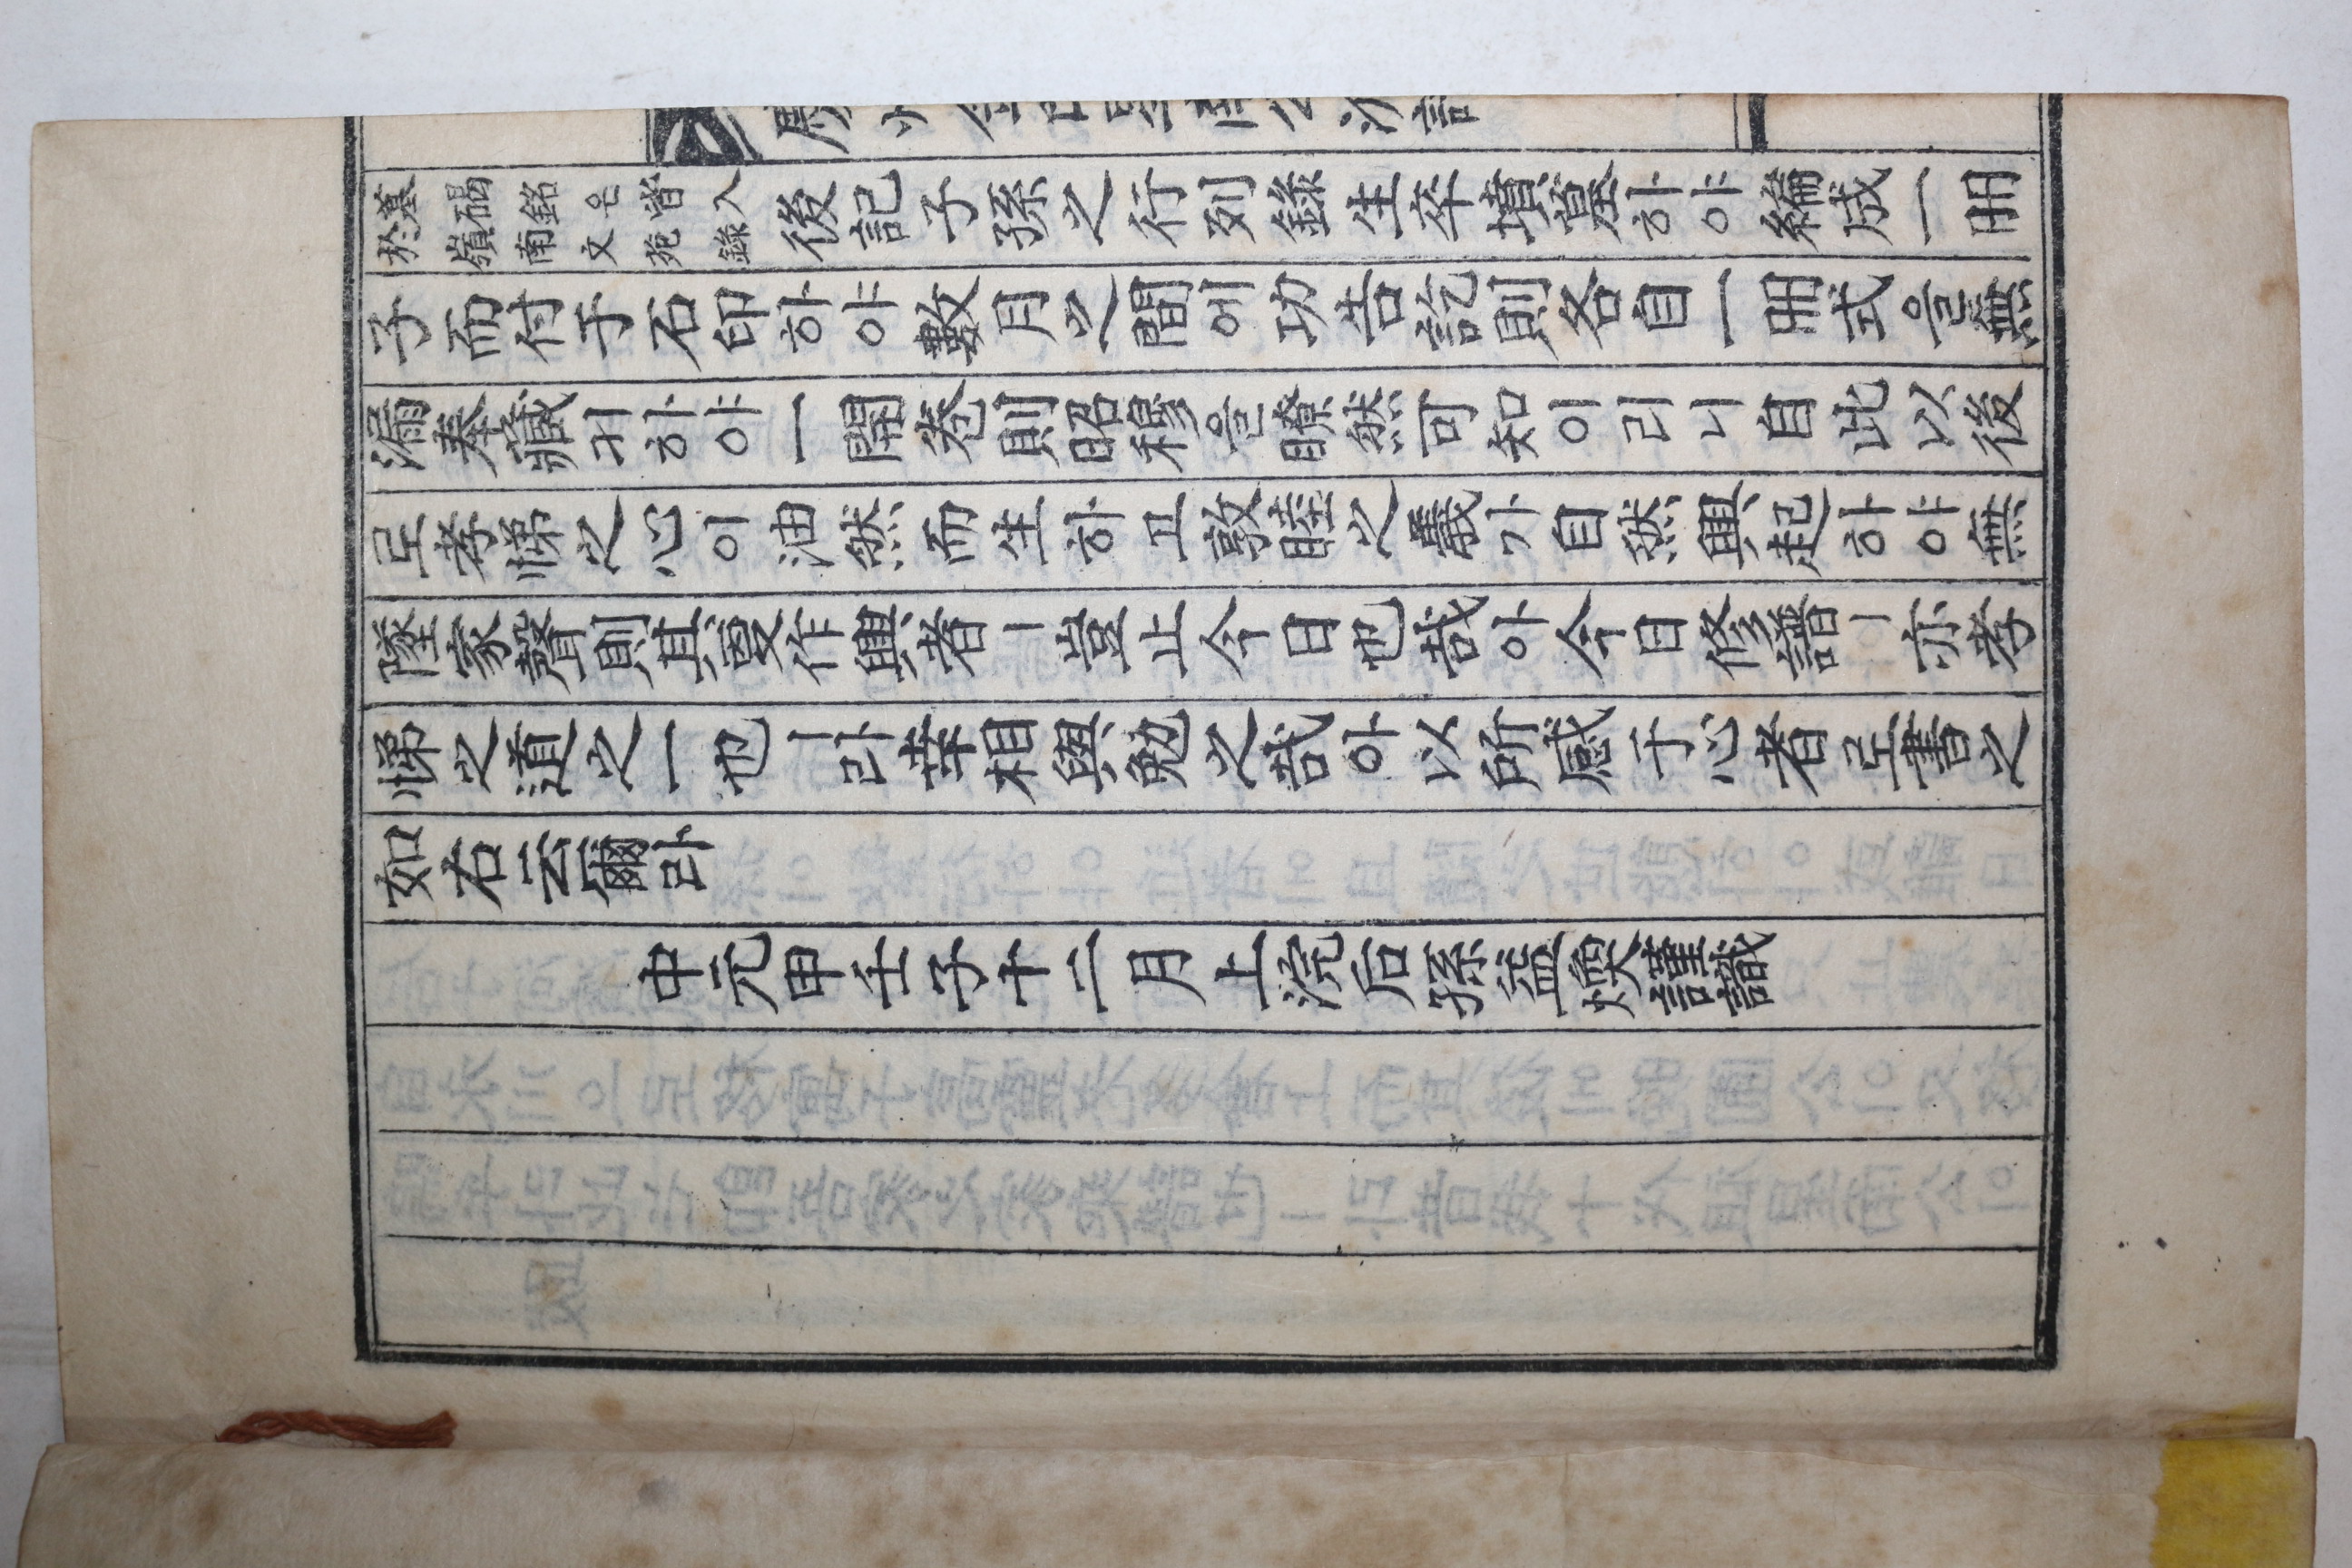 慶州金氏星南公派譜
墓碣銘은皆入
於嶺南文苑錄
後記子孫之行列錄生卒墳墓하야編成一冊
子而付于石印하야數月之間에功告訖則各自一冊式을無
漏奉藏귀하야一開卷則昭穆을瞭然可知이리니自此以後
로孝悌之心이油然而生하고敦睦之義가自然興起하야無
墜家聲則其更作興者ㅣ豈止今日也哉아今日修譜ㅣ亦孝
悌之道之一也ㅣ라幸相與勉之哉아以所感于心者로書之
如右云爾라
中元甲壬子十二月上浣后孫益煥謹識